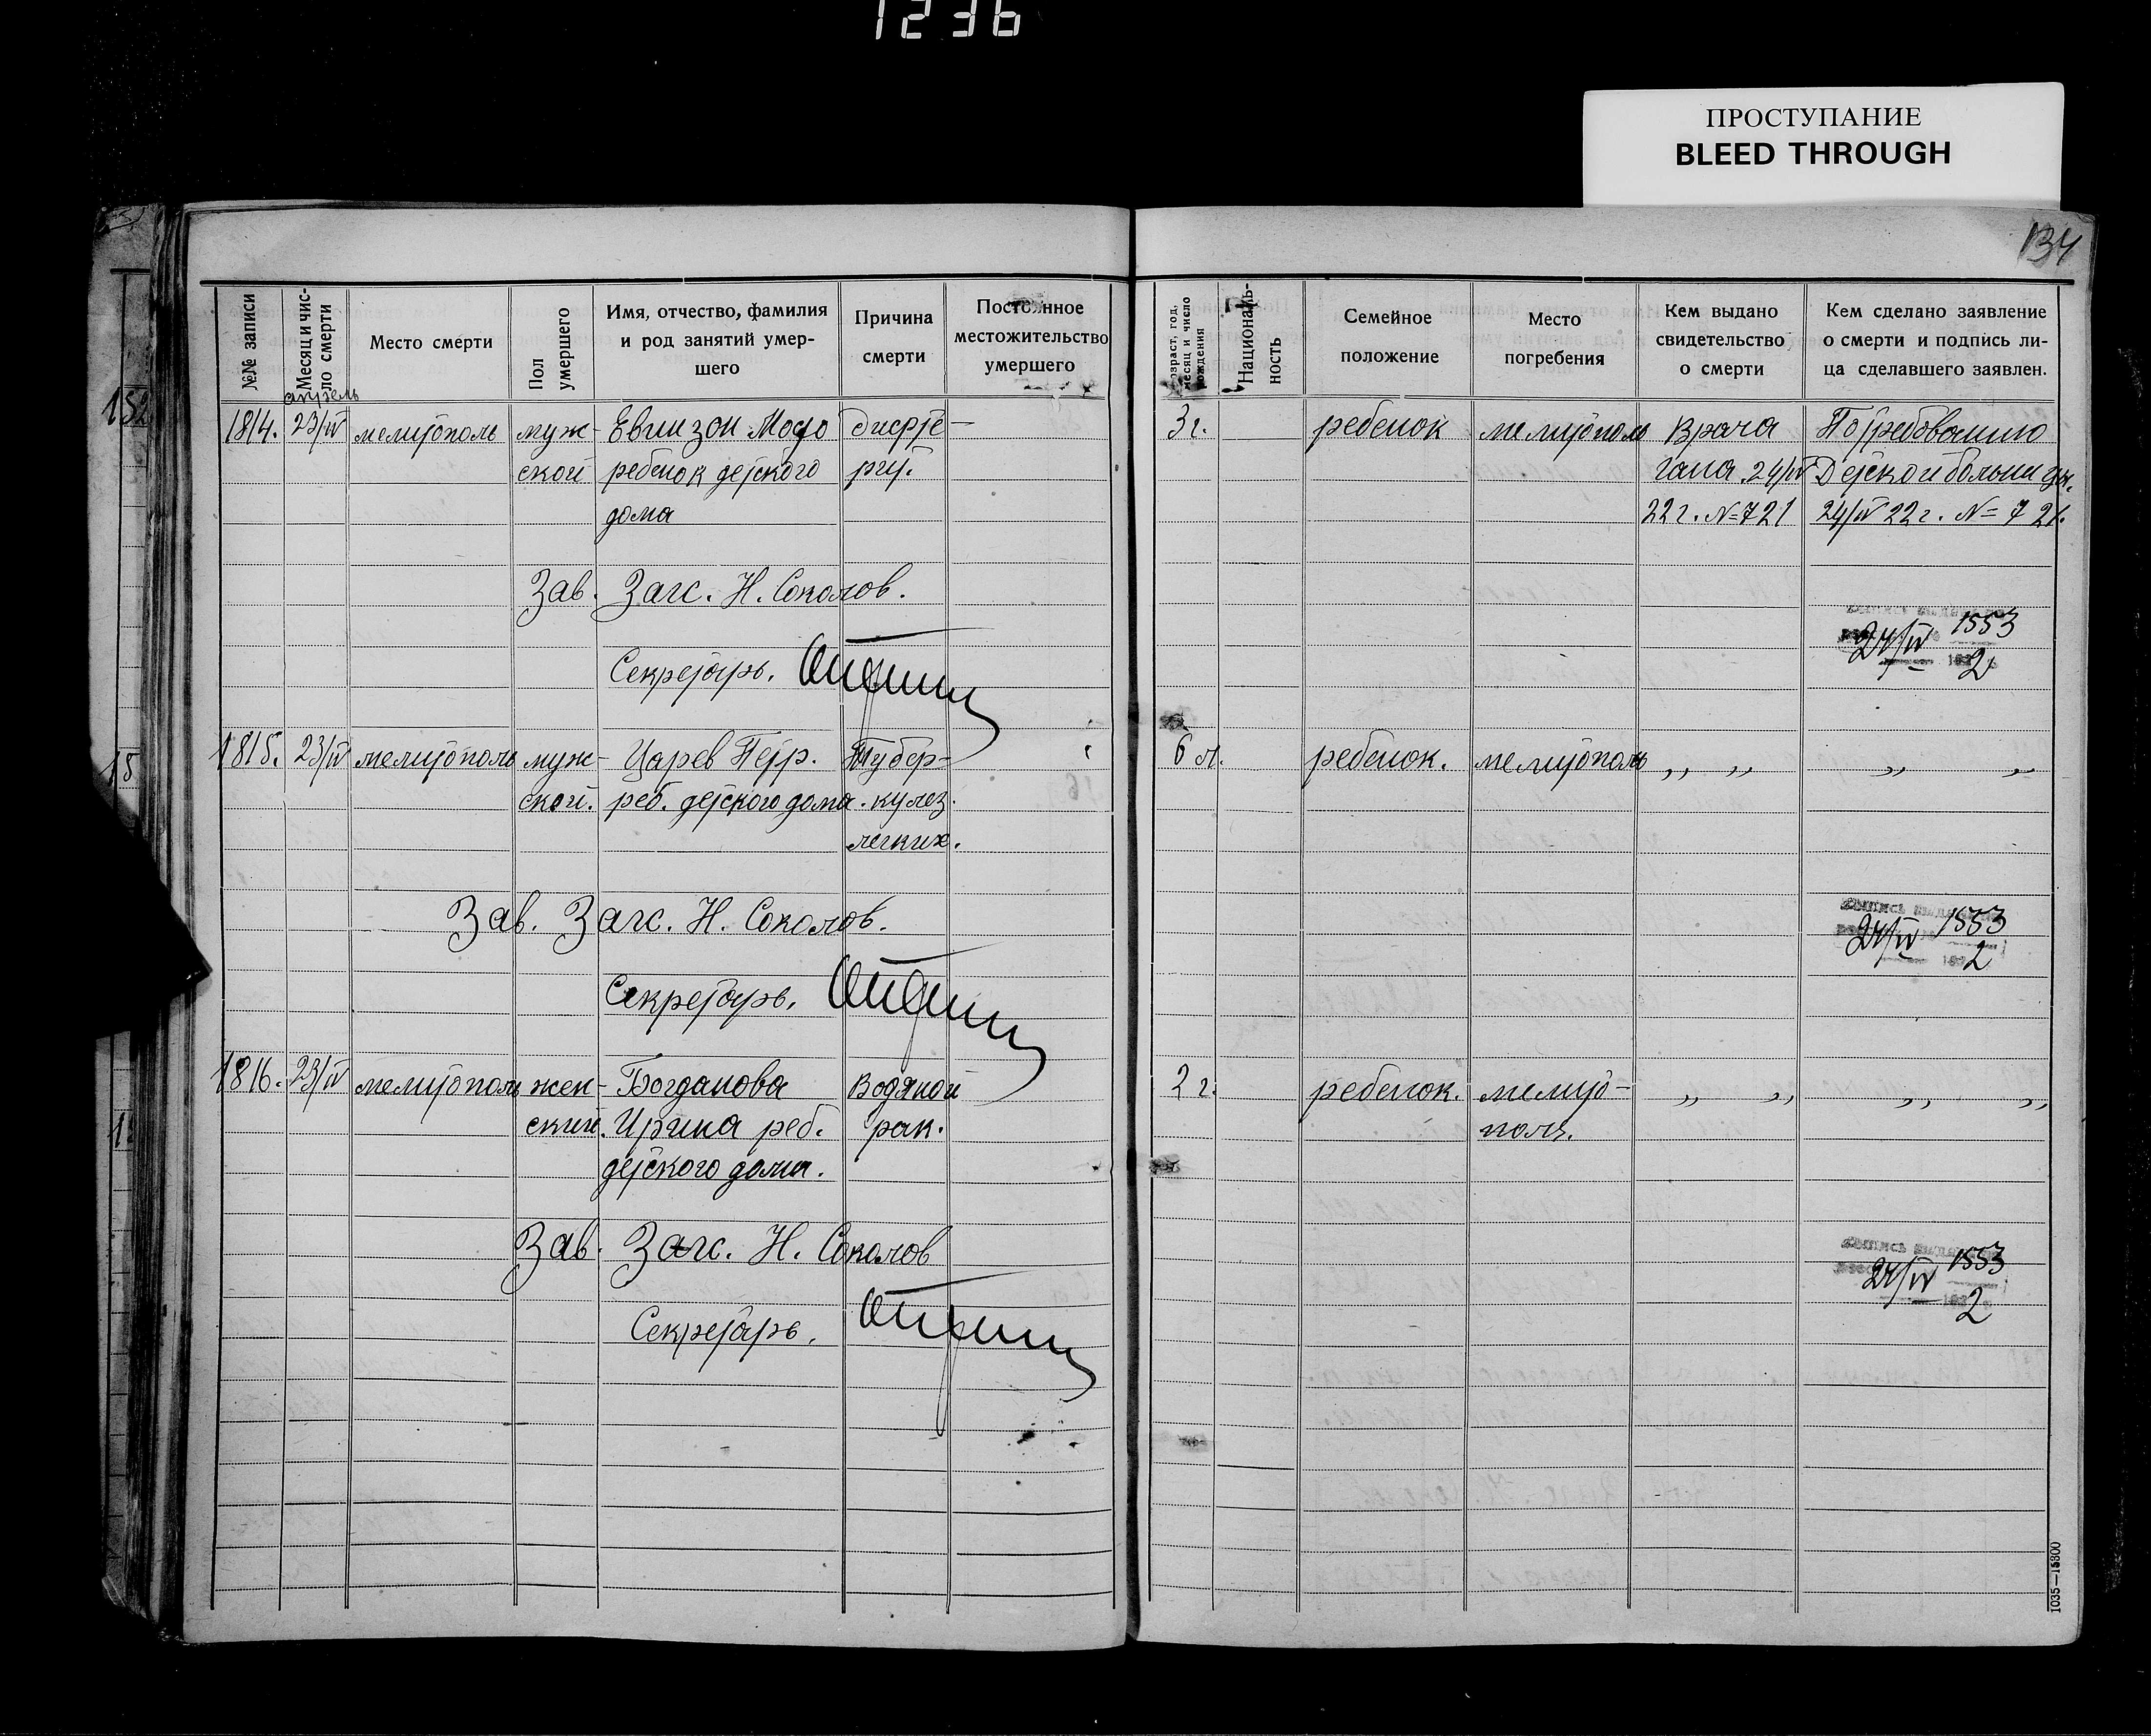 1236
ПРОСТУПАНИЕ
BLEED THROUGH
134
№№ записи
Месяц и чис-
ло смерти
апрель
Место смерти
Пол
умершего
Имя, отчество, фамилия
и род занятий умер-
шего
Причина
смерти
Постоянное
местожительство
умершего
Возраст, год,
месяц и число
рождения
Националь-
ность
Семейное
положение
Место
погребения
Кем выдано
свидетельство
о смерти
Кем сделано заявление
о смерти и подпись ли-
ца сделавшего заявлен.
1814. 23/IV мелитополь муж- дифте- 3 г. ребенок мелитополь Врача По требованию
ской ребенок детского рит. 24/IV Детской больницы.
дома 22 г. №721 24/IV 22 г. № 721.
Зав. Загс. Н. Соколов.
Секретарь.
24/IV 1553
2
1815. 23/IV мелитополь муж- Царев Петр. Тубер- 6 л. ребенок. мелитополь „ „ „ „
ской. реб. детского дома. кулез.
легких.
Зав. Загс. Н. Соколов.
Секретарь.
24/IV 1553
2
1816. 23/IV мелитополь жен- Богданова Водяной 2 г. ребенок. мелито- „ „ „ „
ский. Ирина реб. рак. поль.
детского дома.
Зав. Загс. Н. Соколов
Секретарь.
24/IV 1553
2
1035—15300